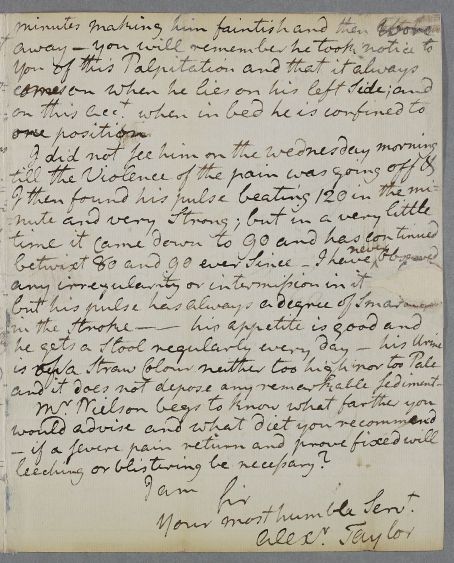 minutes making him faintish and then
away — you will remember he took notice to
you of this Palpitation and that it always
comes on when he lies on his left Side; and
on this acct. when in bed he is confined to
one position
I did not see him on the wednesday morning
till the Violence of the pain was going off &
I then found his pulse beating 120 in the mi-
-nute and very Strong; but in a very little
time it came down to 90 and has continued
betwixt 80 and 90 ever Since — I have never observed
any irregularity or intermission in it
but his pulse has always a degree of
in the Stroke — his appetite is good and
he gets a Stool regularly every day — his Urine
is of a Straw Colour neither too high nor too Pale
and it does not depose any remarkable Sediment.
Mr. Nielson begs to know what farther you
would advise and what diet you recommend
— if a severe pain return and prove fixed will
leeching or blistering be necessary?
I am Sir
Your most humble Servt.
Alexr. Taylor